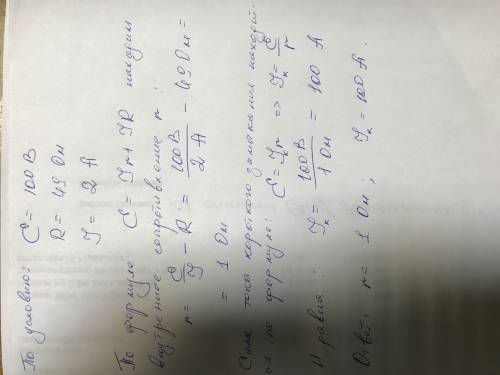 По условию: Ɛ = 100 В
R = 49 Ом
I = 2 А
По формуле Ɛ = Ir + IR находим
внутренние сопротивление r:
r = Ɛ/I − R = 100 В/2 А − 49 Ом =
= 1 Ом
Сила тока короткого замыкания находит-
ся по формуле: Ɛ = Iₖr => Iₖ = Ɛ/r
И равна: Iₖ = 100 В/1 Ом = 100 А
Ответ: r = 1 Ом; Iₖ = 100 А.